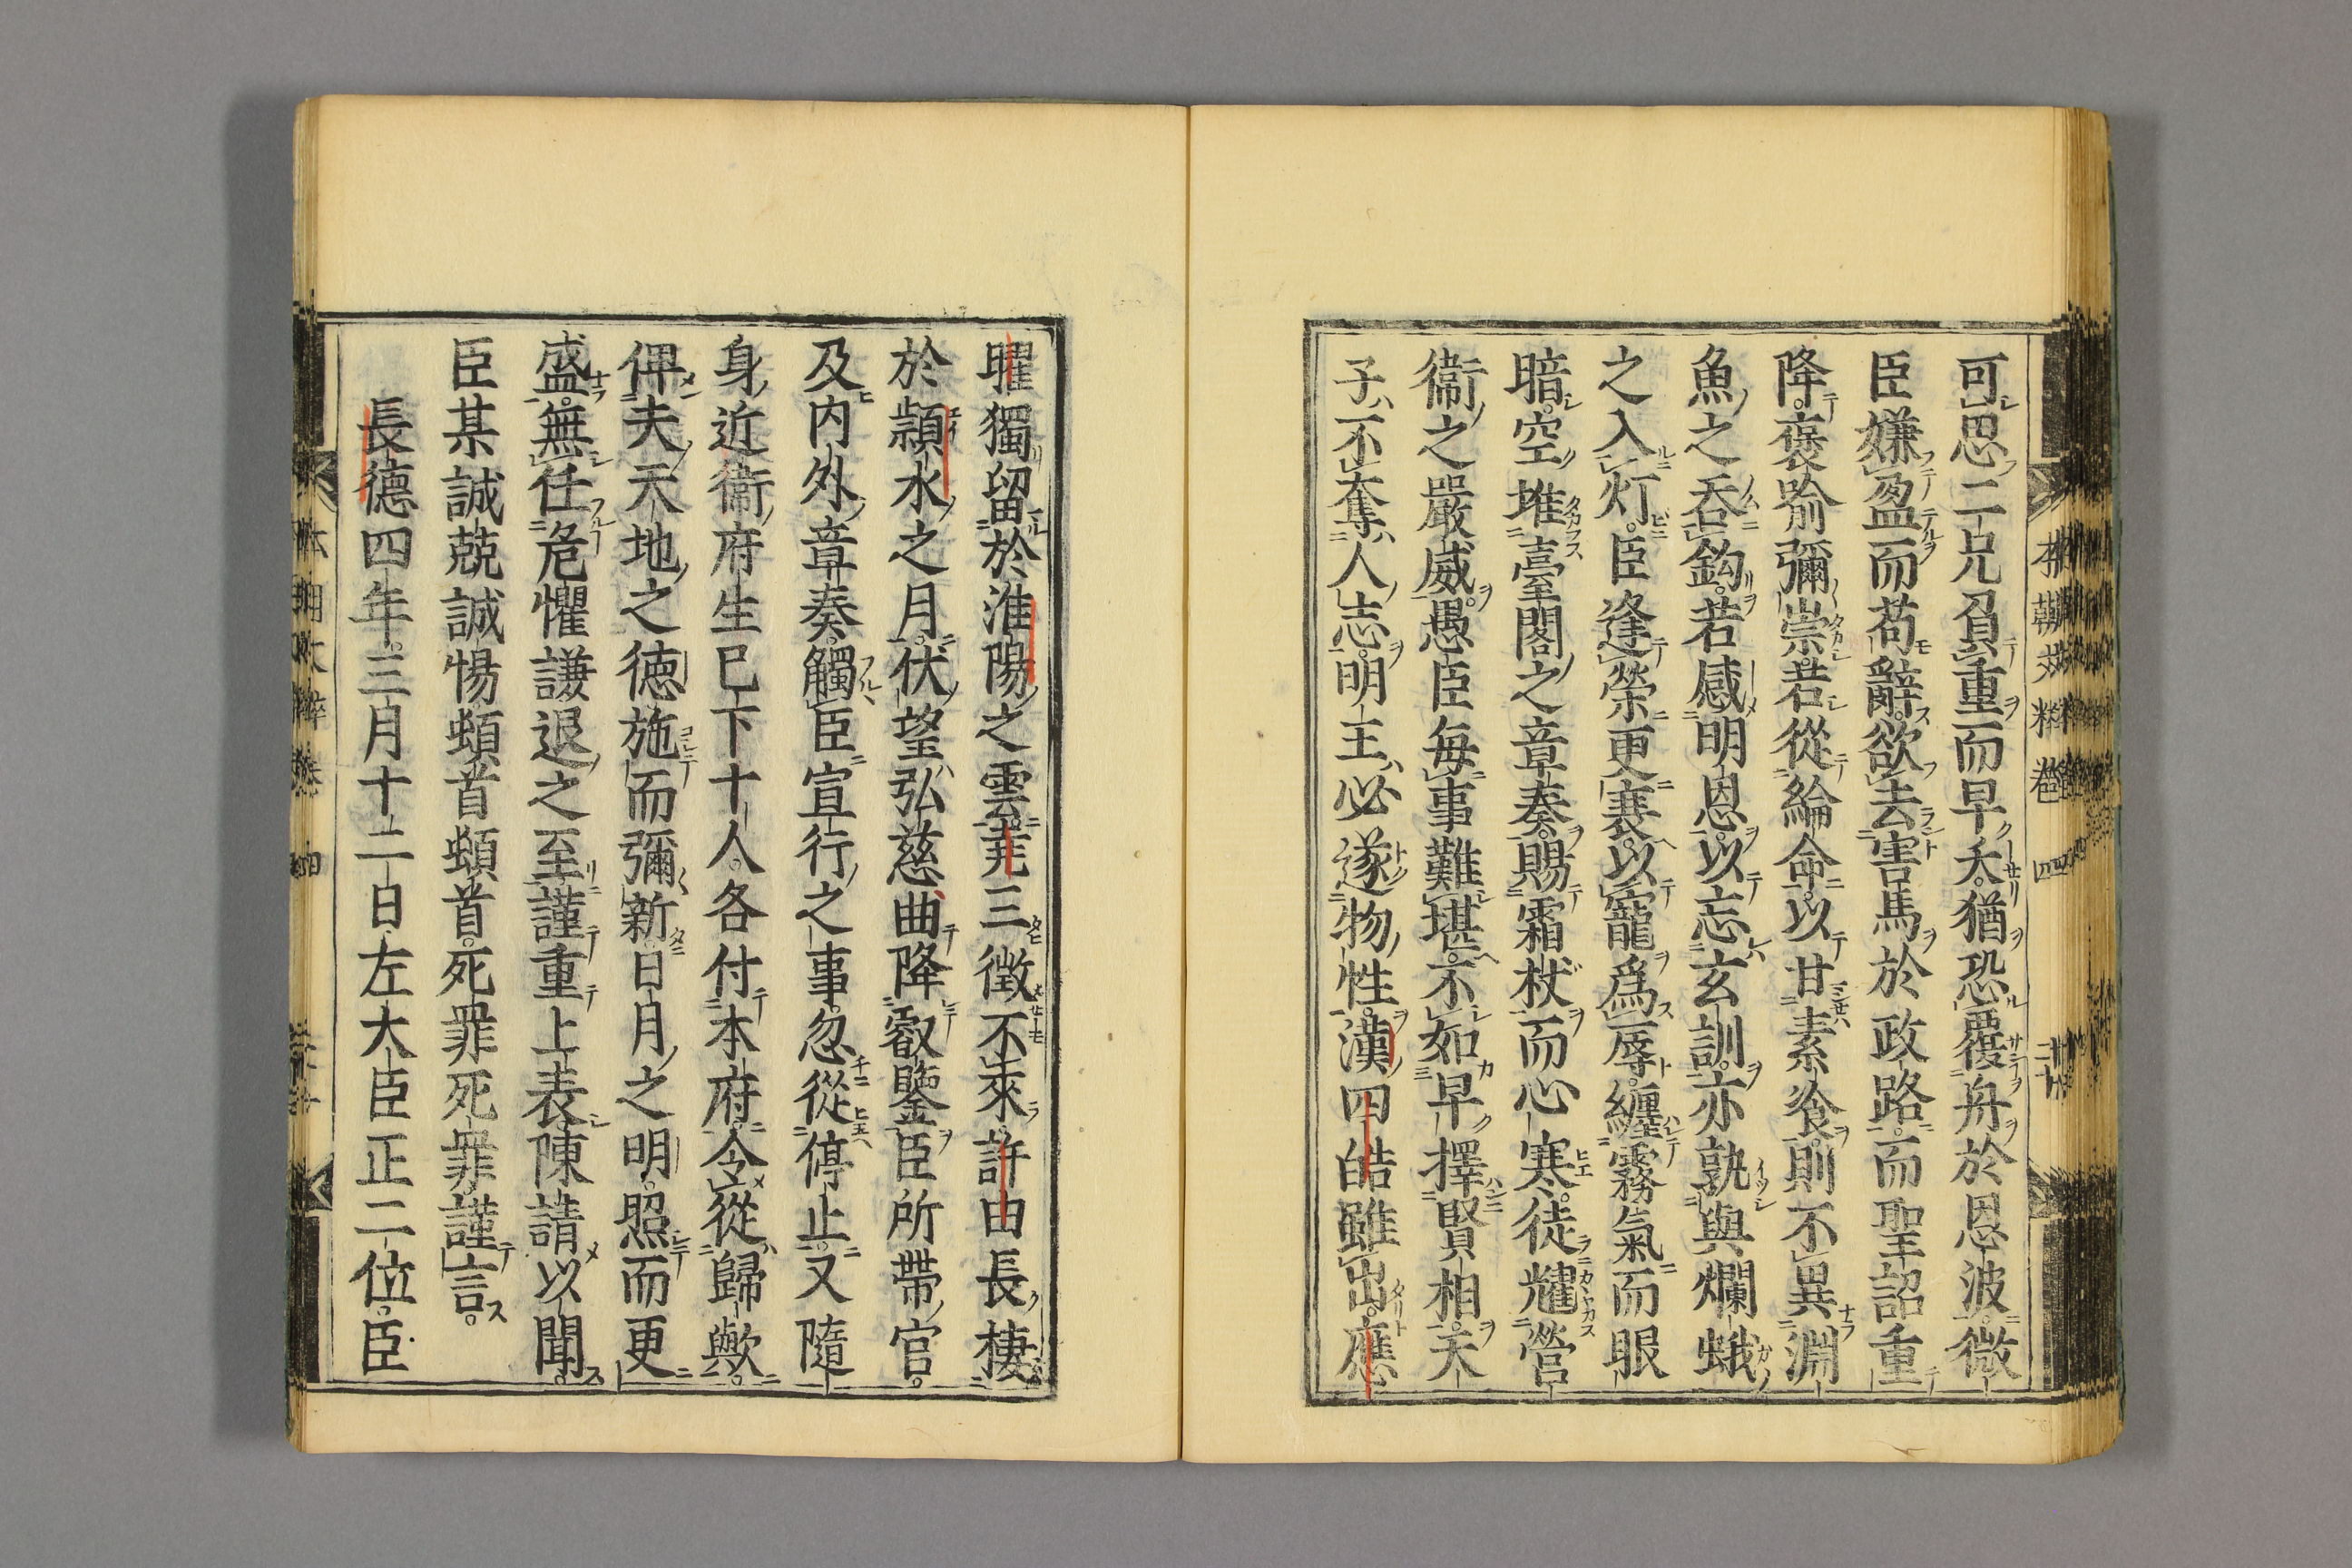 可思二兄負重而早夭猶恐覆舟於恩波微
臣嫌盈而苟辭欲去害馬於政路而聖詔重
降褒喩彌崇若從綸命以甘素飡則不異淵
魚之呑鈎若感明恩以忘玄訓亦孰與爛蛾
之入灯臣逢榮更褰以寵爲辱纏霧氣而眼
暗空堆臺閣之章奏賜霜杖而心寒徒耀營
衞之嚴威愚臣毎事難堪不如早擇賢相天
子不奪人志明主必遂物性漢四皓雖出應
曜獨留於淮陽之雲堯三徴不來許由長棲
於潁水之月伏望弘慈曲降叡鑒臣所帶官
及内外章奏觸臣宣行之事忽從停止又隨
身近衞府生已下十人各付本府令從歸歟
俾夫天地之徳施而彌新日月之明照而更
盛無任危懼謙退之至謹重上表陳請以聞
臣某誠兢誠惕頓首頓首死罪死罪謹言
長德四年三月十二日左大臣正二位臣
本朝文粹卷四